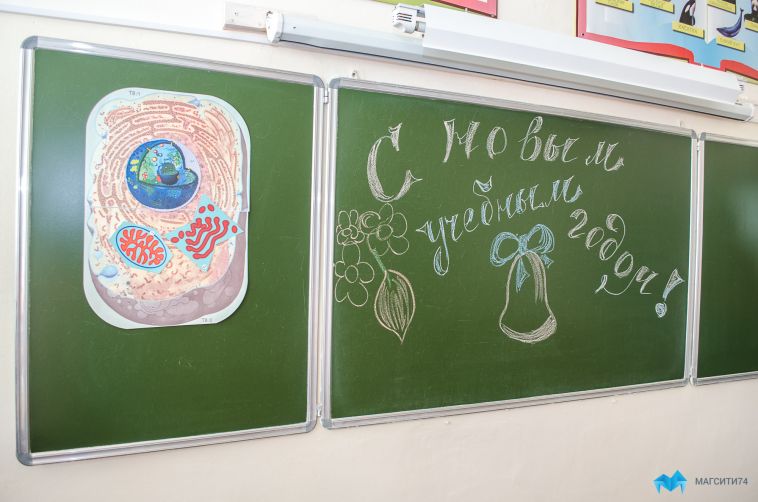 С новым
учебным
годом!
МАГСИТИ74